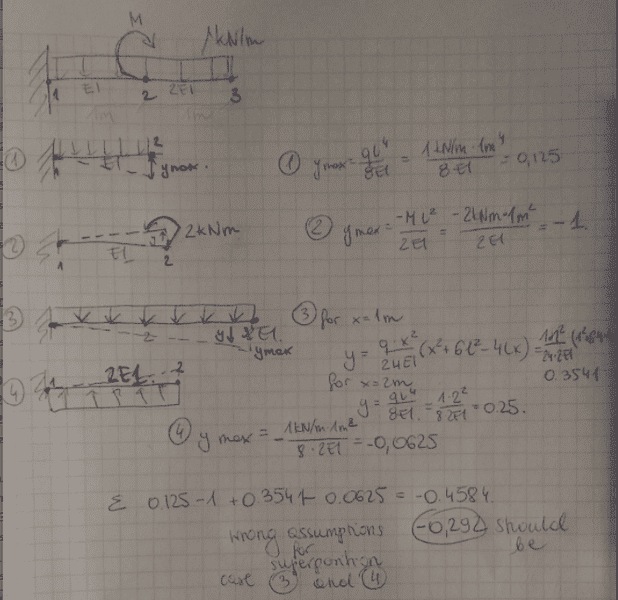 M
1kN/m
1 EI 2 2EI 3
1m 1m
① 1 EI 2 ymax.
① ymax = ql⁴/8EI = 1kN/m·1m⁴/8·EI = 0,125
② 1 EI 2 y 2kNm
② ymax = -Ml²/2EI = -2kNm·1m²/2EI = -1.
③ 2 y EI. ymax
③ for x=1m
y = q·x²/24EI (x²+6l²-4lx) =
0.3541
for x=2m
y = ql⁴/8EI. = 1·2²/8 2EI = 0.25.
④ 1 2EI 2
④ ymax = -1kN/m·1m²/8·2EI = -0,0625
Σ 0.125-1+0.3541-0.0625 = -0.4584.
wrong assumptions
for
superposition
case ③ and ④
-0,292 should
be